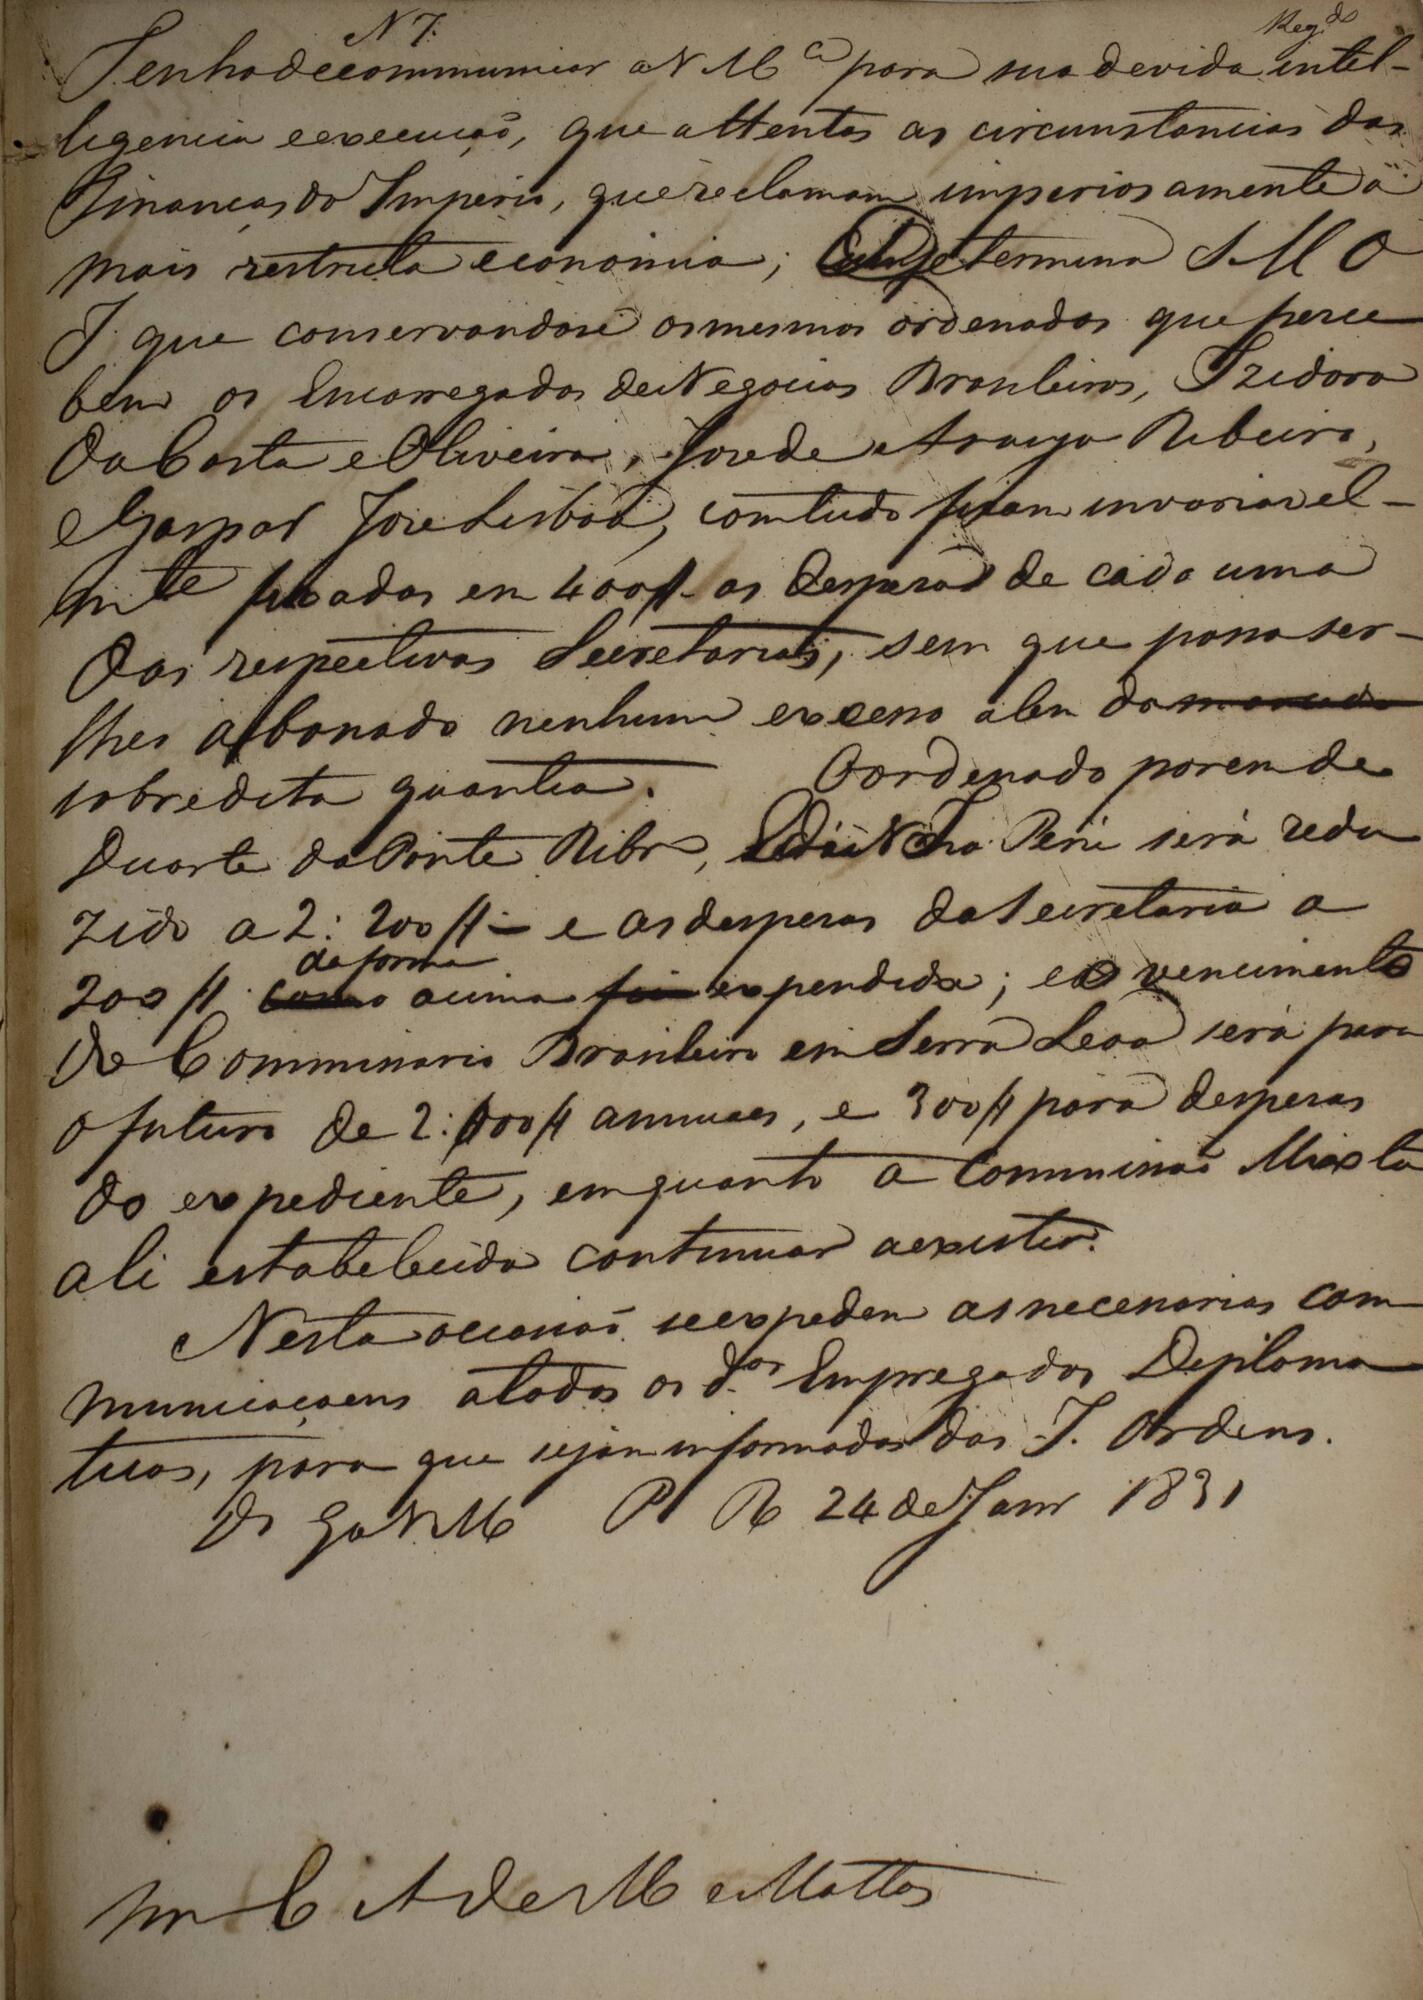 N 7.
Reg.do
Tenho de communicar a V M.ce para sua devida intel-
ligencia e execução, que attentas as circunstancias das
Finanças do Imperio, que reclamam imperiosamente a
mais restricta economia; Determina S M O
I que conservandose os mesmos ordenados que perce
bem os Encarregados de Negocios Brasileiros, Izidoro
da Costa e Oliveira, Jose de Araujo Ribeiro,
e Gaspar Jose Lisboa, comtudo fiquem invariavel-
mte fixadas em 400# as despesas de cada uma
das respectivas Secretarias, sem que possa ser-
lhes abonado nenhum excesso alem da
sobredita quantia. O ordenado porem de
Duarte da Ponte Ribro, no Perú será redu
zido a 2:200# e as despesas da Secretaria a
da forma
200# como acima foi expendida; e o vencimento
do Commissario Brasileiro em Serra Leoa será para
o futuro de 2:000# annuaes, e 300# para despesas
do expediente, emquanto a Commissão Mixta
ali estabelecida continuar a existir.
Nesta occasião se expedem as necessarias com
municaçoens a todos os d.os Empregados Diploma
ticos, para que sejam informados das I. Ordens.
Ds Ge a V M P R 24 de Janr 1831
Snr C A de M e Mattos